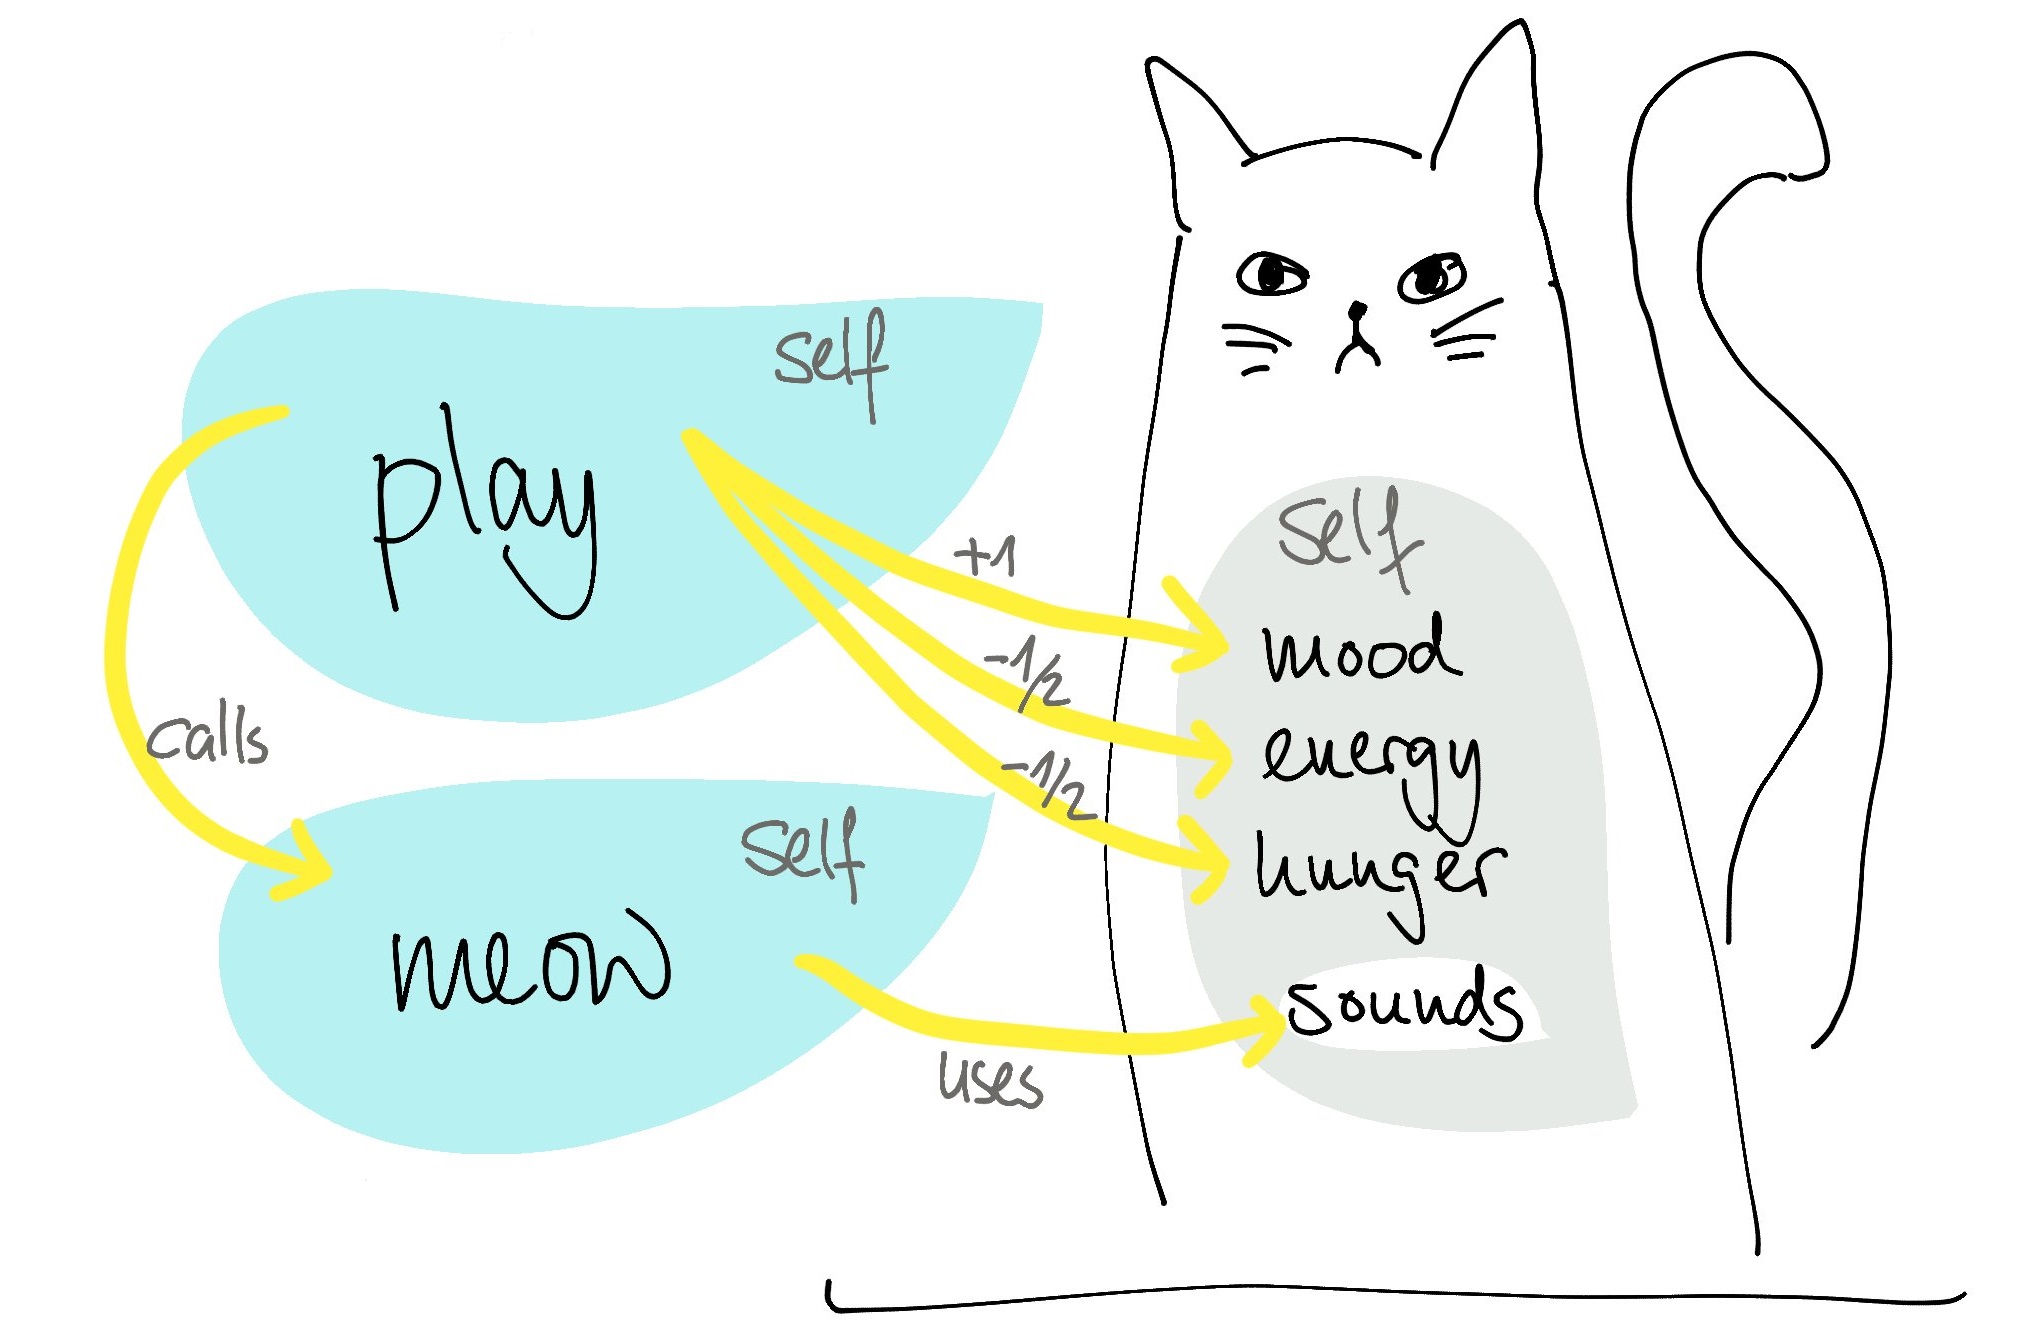 self
play
+1
-1/2
-1/2
calls
self
meow
uses
self
mood
energy
hunger
sounds